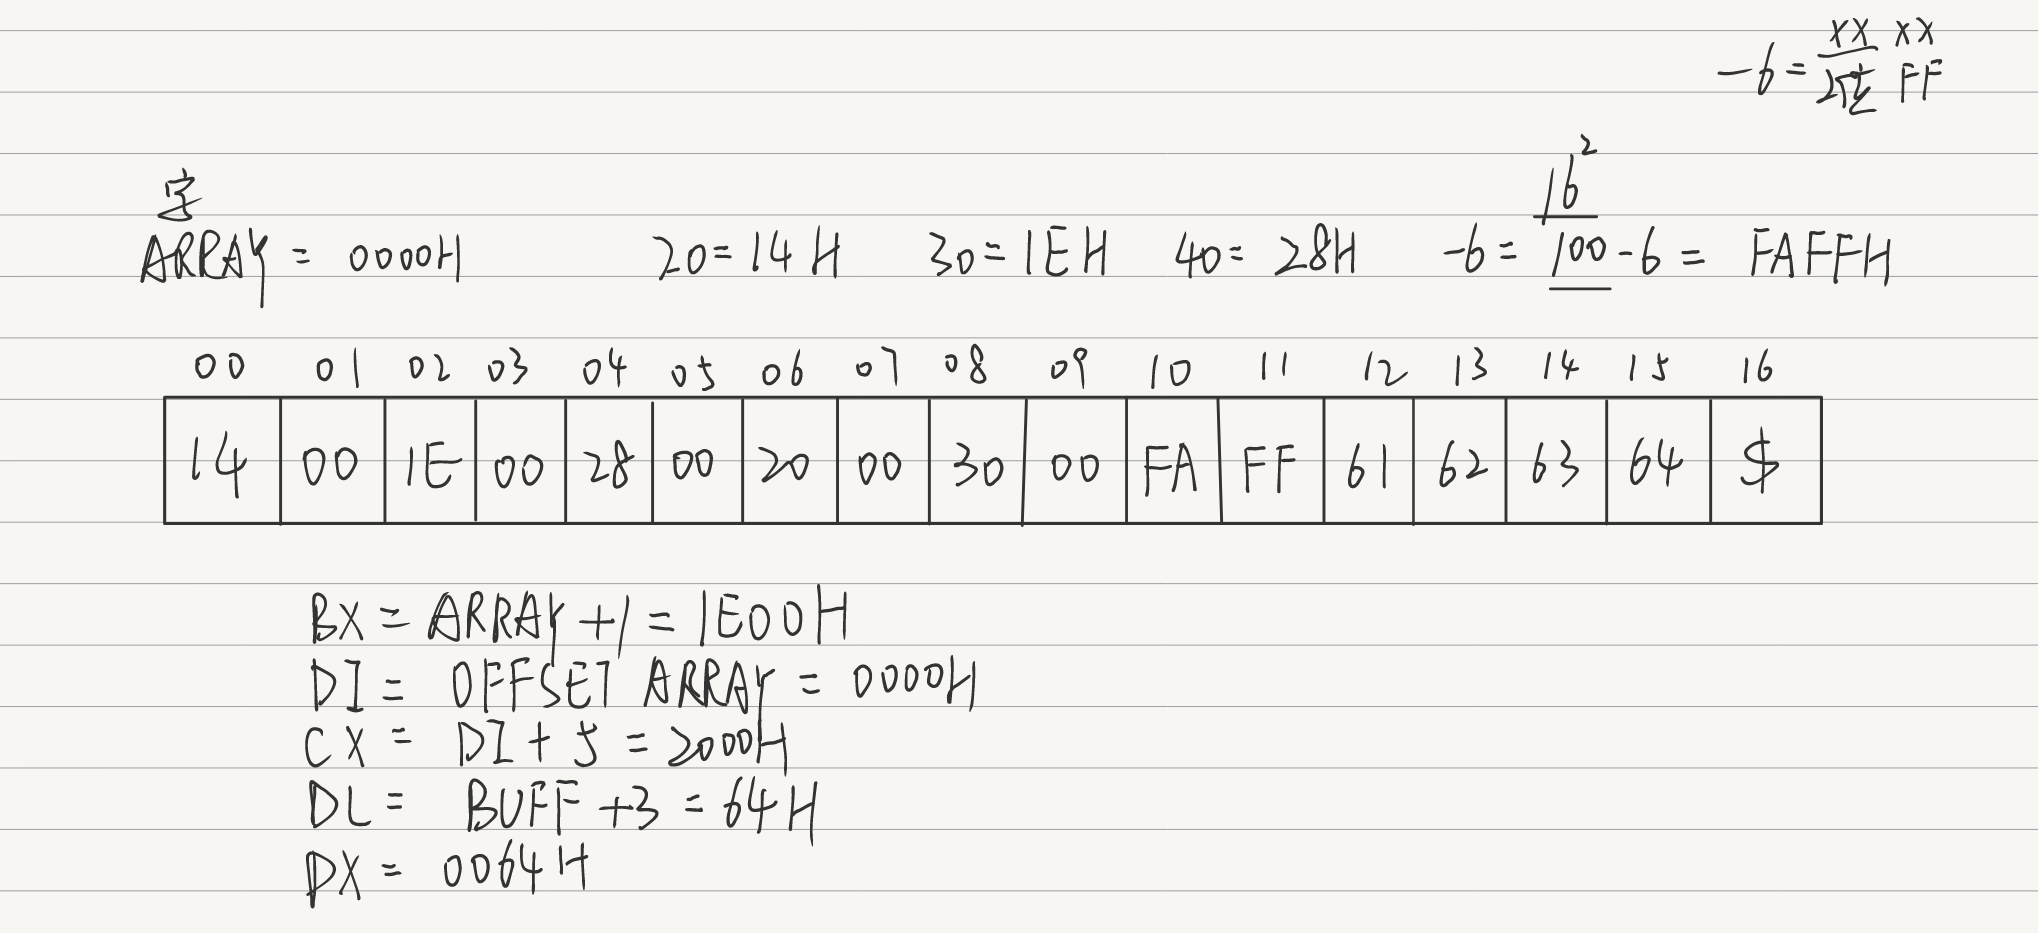 -6 = XX XX
FF
字
16²
ARRAY = 0000H 20=14H 30=1EH 40=28H -6= 100-6 = FAFFH
00 01 02 03 04 05 06 07 08 09 10 11 12 13 14 15 16
14 00 1E 00 28 00 20 00 30 00 FA FF 61 62 63 64 $
BX = ARRAY+1 = 1E00H
DI = OFFSET ARRAY = 0000H
CX = DI+5 = 2000H
DL = BUFF+3 = 64H
DX = 0064H